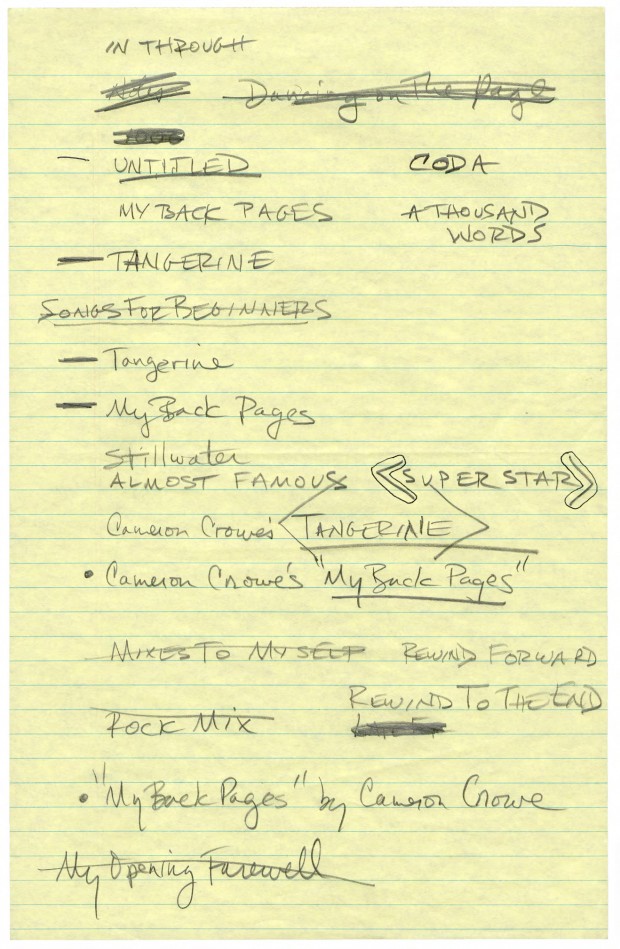 IN THROUGH
Dancing on The Page
UNTITLED CODA
MY BACK PAGES A THOUSAND
WORDS
TANGERINE
SONGS FOR BEGINNERS
Tangerine
My Back Pages
Stillwater
ALMOST FAMOUS SUPERSTAR
Cameron Crowe's TANGERINE
• Cameron Crowe's "My Back Pages"
MIXES TO MYSELF REWIND FORWARD
REWIND TO THE END
ROCK MIX
• "My Back Pages" by Cameron Crowe
My Opening Farewell